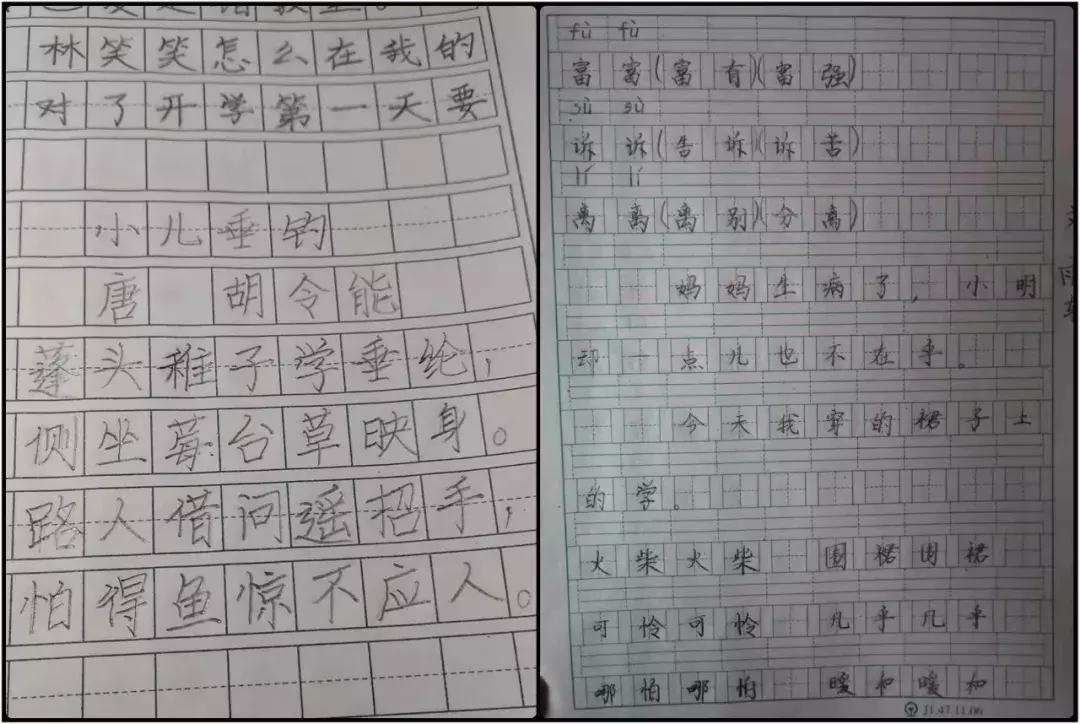 林笑笑怎么在我的
对了开学第一天要
小儿垂钓
唐 胡令能
蓬头稚子学垂纶，
侧坐莓台草映身。
路人借问遥招手，
怕得鱼惊不应人。
fù fù
富富(富有)(富强)
sù sù
诉诉(告诉)(诉苦)
lí lí
离离(离别)(分离)
妈妈生病了，小明
却一点儿也不在乎。
今天我穿的裙子上
的学。
火柴火柴 围裙围裙
可怜可怜 几乎几乎
哪怕哪怕 暖和暖和
21.47.11.06